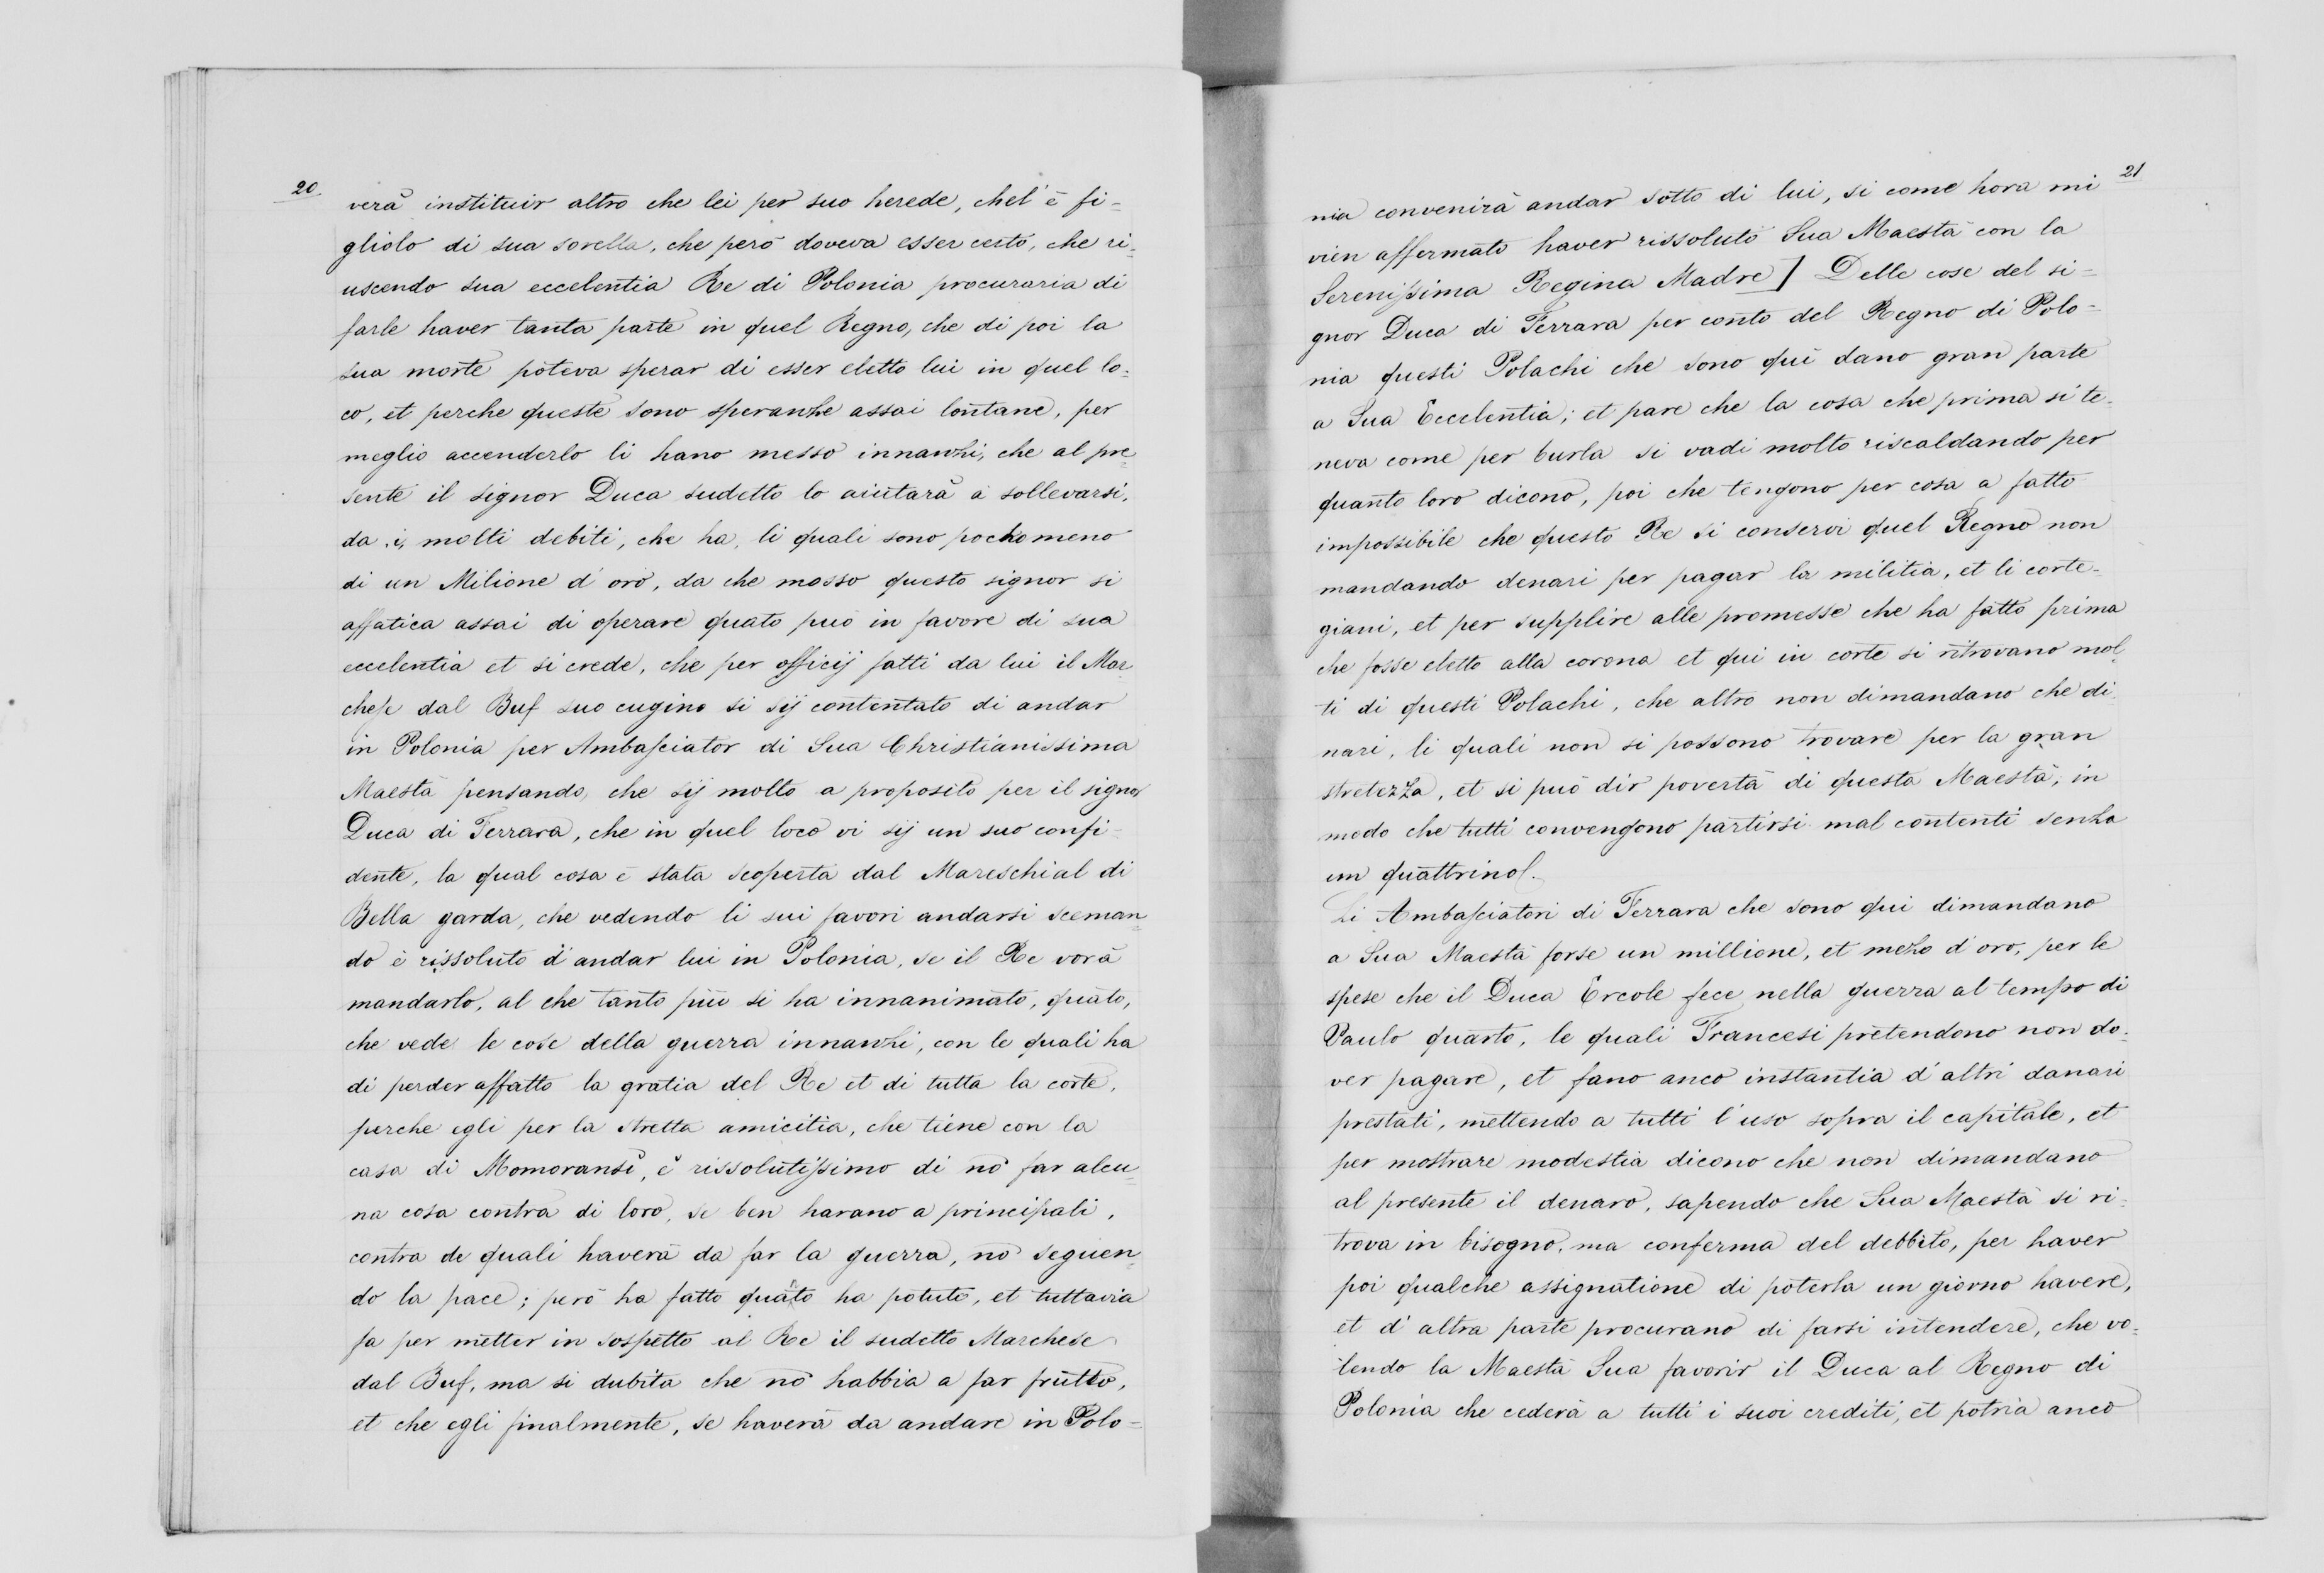 20.
verà instituir altro che lei per suo herede, chel' è fi=
gliolo di sua sorella, che però doveva esser certo, che ri=
uscendo sua eccelentia Re di Polonia procuraria di
farle haver tanta parte in quel Regno, che di poi la
sua morte poteva sperar di esser eletto lui in quel lo=
co, et perche queste sono speranze assai lontane, per
meglio accenderlo li hano messo innanzi, che al pre=
sente il signor Duca sudetto lo aiutarà a sollevarsi,
da i, molti debiti, che ha, li quali sono pocho meno
di un Milione d'oro, da che mosso questo signor si
affatica assai di operare quato può in favore di sua
eccelentia et si crede, che per officij fatti da lui il Mar=
chese dal Buf suo cugino si sij contentato di andar
in Polonia per Ambasciator di Sua Christianissima
Maestà pensando, che sij molto a proposito per il signor
Duca di Ferrara, che in quel loco vi sij un suo confi=
dente, la qual cosa è stata scoperta dal Mareschial di
Bella garda, che vedendo li sui favori andarsi sceman=
do è rissoluto d'andar lui in Polonia, se il Re vorà
mandarlo, al che tanto più si ha innanimato, quāto,
che vede le cose della guerra innanzi, con le quali ha
di perder affatto la gratia del Re et di tutta la corte,
perche egli per la stretta amicitia, che tiene con la
casa di Momoransì, è rissolutissimo di nō far alcu=
na cosa contra di loro, se ben harano a principali,
contra de quali haverà da far la guerra, nō seguen=
do la pace; però ha fatto quāto ha potuto, et tuttavia
fa per metter in sospetto al Re il sudetto Marchese
dal Buf, ma si dubita che nō habbia a far frutto,
et che egli finalmente, se haverà da andare in Polo=
21
nia convenirà andar sotto di lui, si come hora mi
vien affermato haver rissoluto Sua Maestà con la
Serenissima Regina Madre] Delle cose del si=
gnor Duca di Ferrara per conto del Regno di Polo=
nia questi Polachi che sono quì dano gran parte
a Sua Eccelentia; et pare che la cosa che prima si te=
neva come per burla si vadi molto riscaldando per
quanto loro dicono, poi che tengono per cosa a fatto
impossibile che questo Re si conservi quel Regno non
mandando denari per pagar la militia, et li corte=
giani, et per supplire alle promesse che ha fatto prima
che fosse eletto alla corona et qui in corte si ritrovano mol=
ti di questi Polachi, che altro non dimandano che di=
nari, li quali non si possono trovare per la gran
stretezza, et si può dir povertà di questa Maestà, in
modo che tutti convengono partirsi mal contenti senza
un quattrino[.
Li Ambasciatori di Ferrara che sono qui dimandano
a Sua Maestà forse un millione, et mezo d'oro, per le
spese che il Duca Ercole fece nella guerra al tempo di
Paulo quarto, le quali Francesi pretendono non do=
ver pagare, et fano anco instantia d'altri danari
prestati, mettendo a tutti l'uso sopra il capitale, et
per mostrare modestia dicono che non dimandano
al presente il denaro, sapendo che Sua Maestà si ri=
trova in bisogno, ma conferma del debbito, per haver
poi qualche assignatione di poterla un giorno havere,
et d'altra parte procurano di farsi intendere, che vo=
lendo la Maestà Sua favorir il Duca al Regno di
Polonia che cederà a tutti i suoi crediti, et potria anco